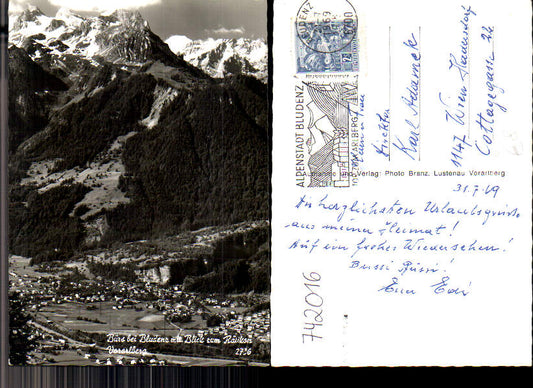 Bürs bei Bludenz mit Blick zum Rätikon
Vorarlberg 2736
BLUDENZ
6700
ALPENSTADT BLUDENZ
VORARLBERG
Fräulein
Karl Adamek
1147 Wien Hadersdorf
Cottagegasse 22
und Verlag: Photo Branz, Lustenau Vorarlberg
31.7.69
Die herzlichsten Urlaubsgrüsse
aus meiner Heimat!
Auf ein frohes Wiedersehen!
Bussi Bussi!
Euer Edi
742016